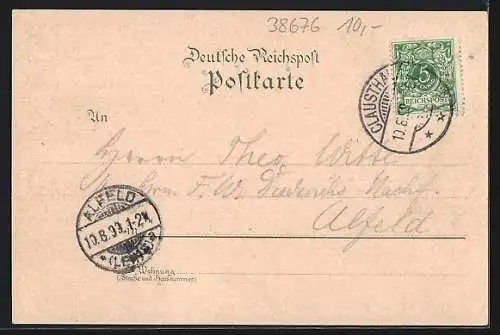 38676 10,-
Deutsche Reichspost
Postkarte
5
REICHSPOST
CLAUSTHA
10.8.9
An
Herrn Theo Witte
Herrn F. W. Nachf.
Alfeld
ALFELD
10.8.99. 1-2N
* (LEINE)
Wohnung
(Straße und Hausnummer)